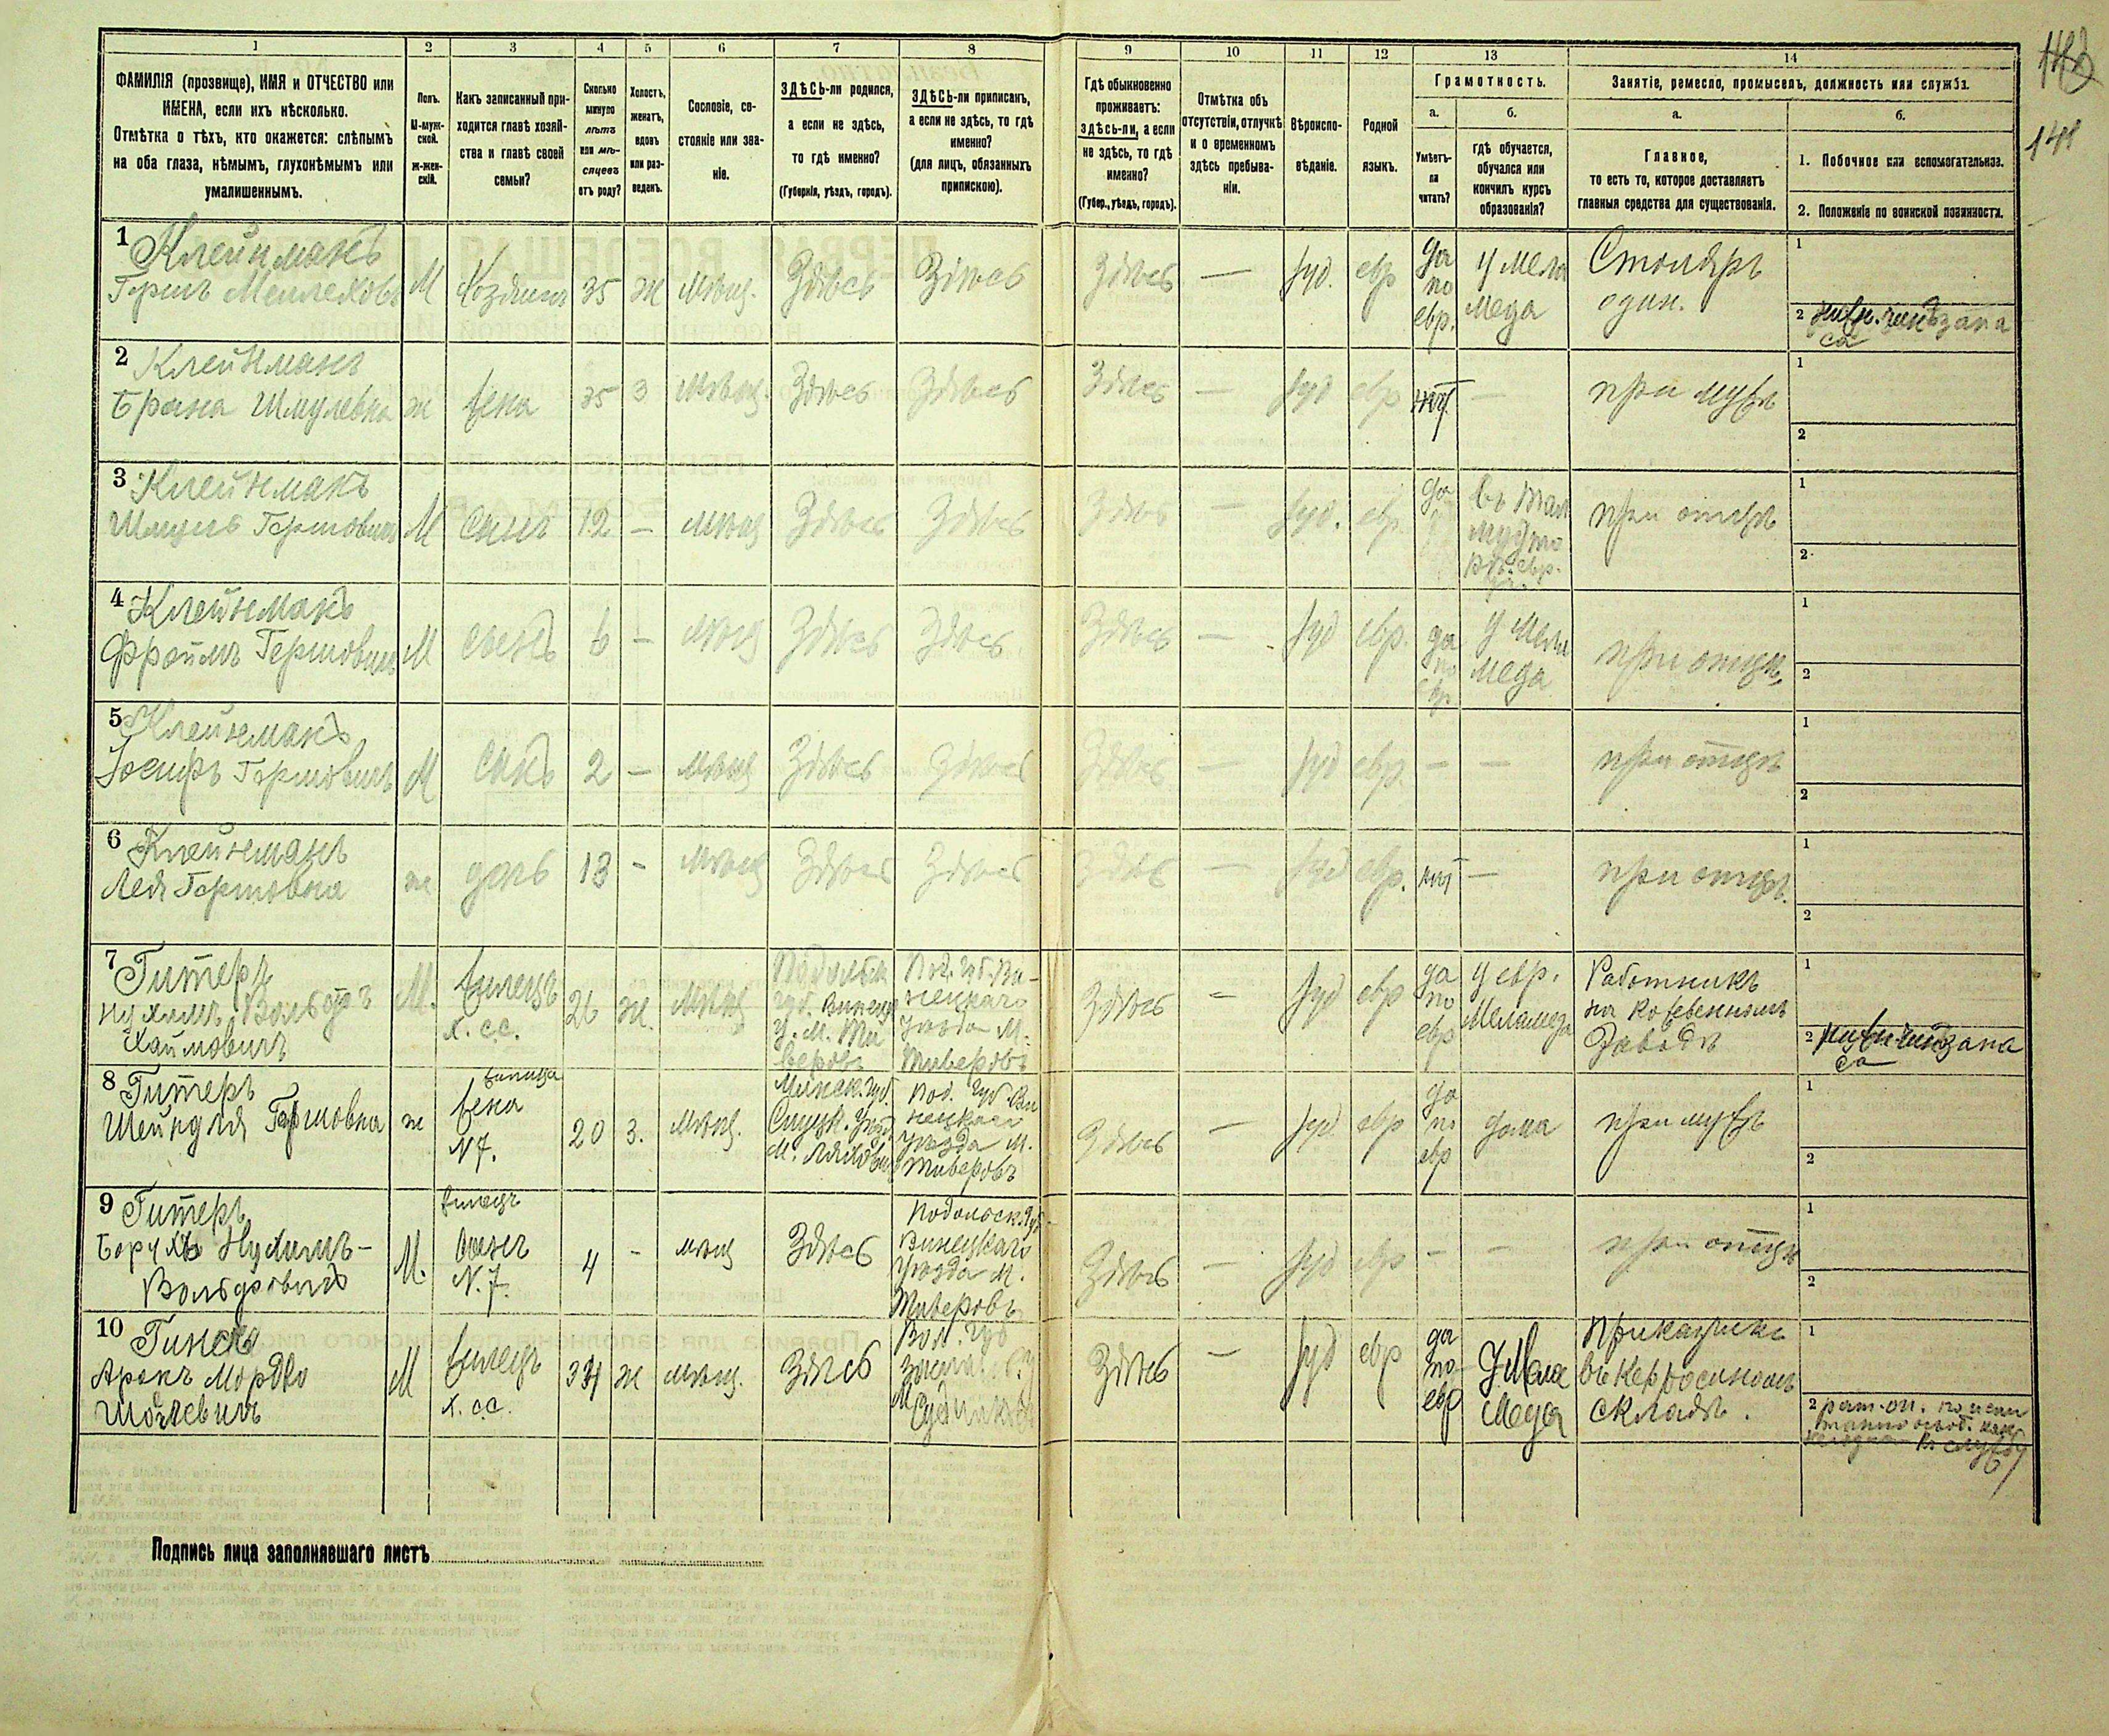 148
1
2
3
4
5
6
7
8
9
10
11
12
13
14
ФАМИЛІЯ (прозвище), ИМЯ и ОТЧЕСТВО или
ИМЕНА, если ихъ нѣсколько.
Отмѣтка о тѣхъ, кто окажется: слѣпымъ
на оба глаза, нѣмымъ, глухонѣмымъ или
умалишеннымъ.
Полъ.
М-муж-
ской.
ж-жен-
скій.
Какъ записанный при-
ходится главѣ хозяй-
ства и главѣ своей
семьи?
Сколько
минуло
лѣтъ
или мѣ-
сяцевъ
отъ роду?
Холостъ,
женатъ,
вдовъ
или раз-
веденъ.
Сословіе, со-
стояніе или зва-
ніе.
ЗДѢСЬ-ли родился,
а если не здѣсь,
то гдѣ именно?
(Губернія, уѣздъ, городъ).
ЗДѢСЬ-ли приписанъ,
а если не здѣсь, то гдѣ
именно?
(для лицъ, обязанныхъ
припискою).
Гдѣ обыкновенно
проживаетъ:
здѣсь-ли, а если
не здѣсь, то гдѣ
именно?
(Губер., уѣздъ, городъ).
Отмѣтка объ
отсутствіи, отлучкѣ
и о временномъ
здѣсь пребыва-
ніи.
Вѣроиспо-
вѣданіе.
Родной
языкъ.
Грамотность.
а.
Умѣетъ-
ли
читать?
б.
гдѣ обучается,
обучался или
кончилъ курсъ
образованія?
Занятіе, ремесло, промыселъ, должность или служба.
а.
Главное,
то есть то, которое доставляетъ
главныя средства для существованія.
б.
1. Побочное или вспомогательное.
2. Положеніе по воинской повинности.
1 Клейнманъ
Гершъ Меилеховъ
М
Хозяинъ
35
ж
мѣщ.
Здѣсь
Здѣсь
Здѣсь
—
Іуд.
евр
да
по
евр.
у мела
меда
Столяръ
один.
1
2
2 Клейнманъ
Брана Шмулевна
ж
жена
35
З
мѣщ.
Здѣсь
Здѣсь
Здѣсь
—
Іуд
евр
нѣт
—
при мужѣ
1
2
3 Клейнманъ
Шмуль Гершовичъ
М
Сынъ
12
—
мѣщ
Здѣсь
Здѣсь
Здѣсь
—
Іуд.
евр.
да
при отцѣ
1
2
4 Клейнманъ
Фроимъ Гершовичъ
М
сынъ
6
—
мѣщ
Здѣсь
Здѣсь
Здѣсь
—
Іуд
евр.
да
по
евр
у мела
меда
при отцѣ
1
2
5 Клейнманъ
Іосифъ Гершовичъ
М
Сынъ
2
—
мѣщ
Здѣсь
Здѣсь
Здѣсь
—
Іуд
евр.
—
—
при отцѣ
1
2
6 Клейнманъ
Лея Гершовна
ж
дочь
13
-
мѣщ
Здѣсь
Здѣсь
Здѣсь
—
Іуд
евр.
нѣт
—
при отцѣ.
1
2
7 Гитеръ
Нухимъ-Вольфъ
Хаимовичъ
М.
жилецъ
х. с.с.
26
ж.
мѣщ
Подольск
губ. Виниц
у. М. Ти
веровъ
Под. губ. Ви-
нецкаго
уѣзда М.
Тиверовъ
Здѣсь
-
Іуд
евр
да
по
евр
у евр.
Меламеда
Работникъ
на кожевенномъ
Заводѣ
1
2
8 Гитеръ
Шейндля Гершовна
ж
жильца
жена
N 7.
20
З.
мѣщ.
Минск. губ.
Слуцк. уѣзд
М. Ляхович
Под. губ Ви
нецкаго
уѣзда М.
Тиверовъ
Здѣсь
—
Іуд
евр
да
по
евр
дома
при мужѣ
1
2
9 Гитеръ
Борухъ Нухимъ-
Вольфовичъ
М.
жилецъ
сынъ
N. 7.
4
-
мѣщ
Здѣсь
Подольск. губ
Винецкаго
уѣзда М.
Тиверовъ
Здѣсь
—
Іуд
евр
—
—
при отцѣ
1
2
10 Гинскъ
Аронъ Мордко
М
жилецъ
х. с.с.
34
ж
мѣщ.
Здѣсь
Вол. губ
Здѣсь
—
Іуд
евр
да
по
евр
у Мела
меда
Приказчикъ
въ Керосиномъ
складѣ.
1
2
Подпись лица заполнявшаго листъ